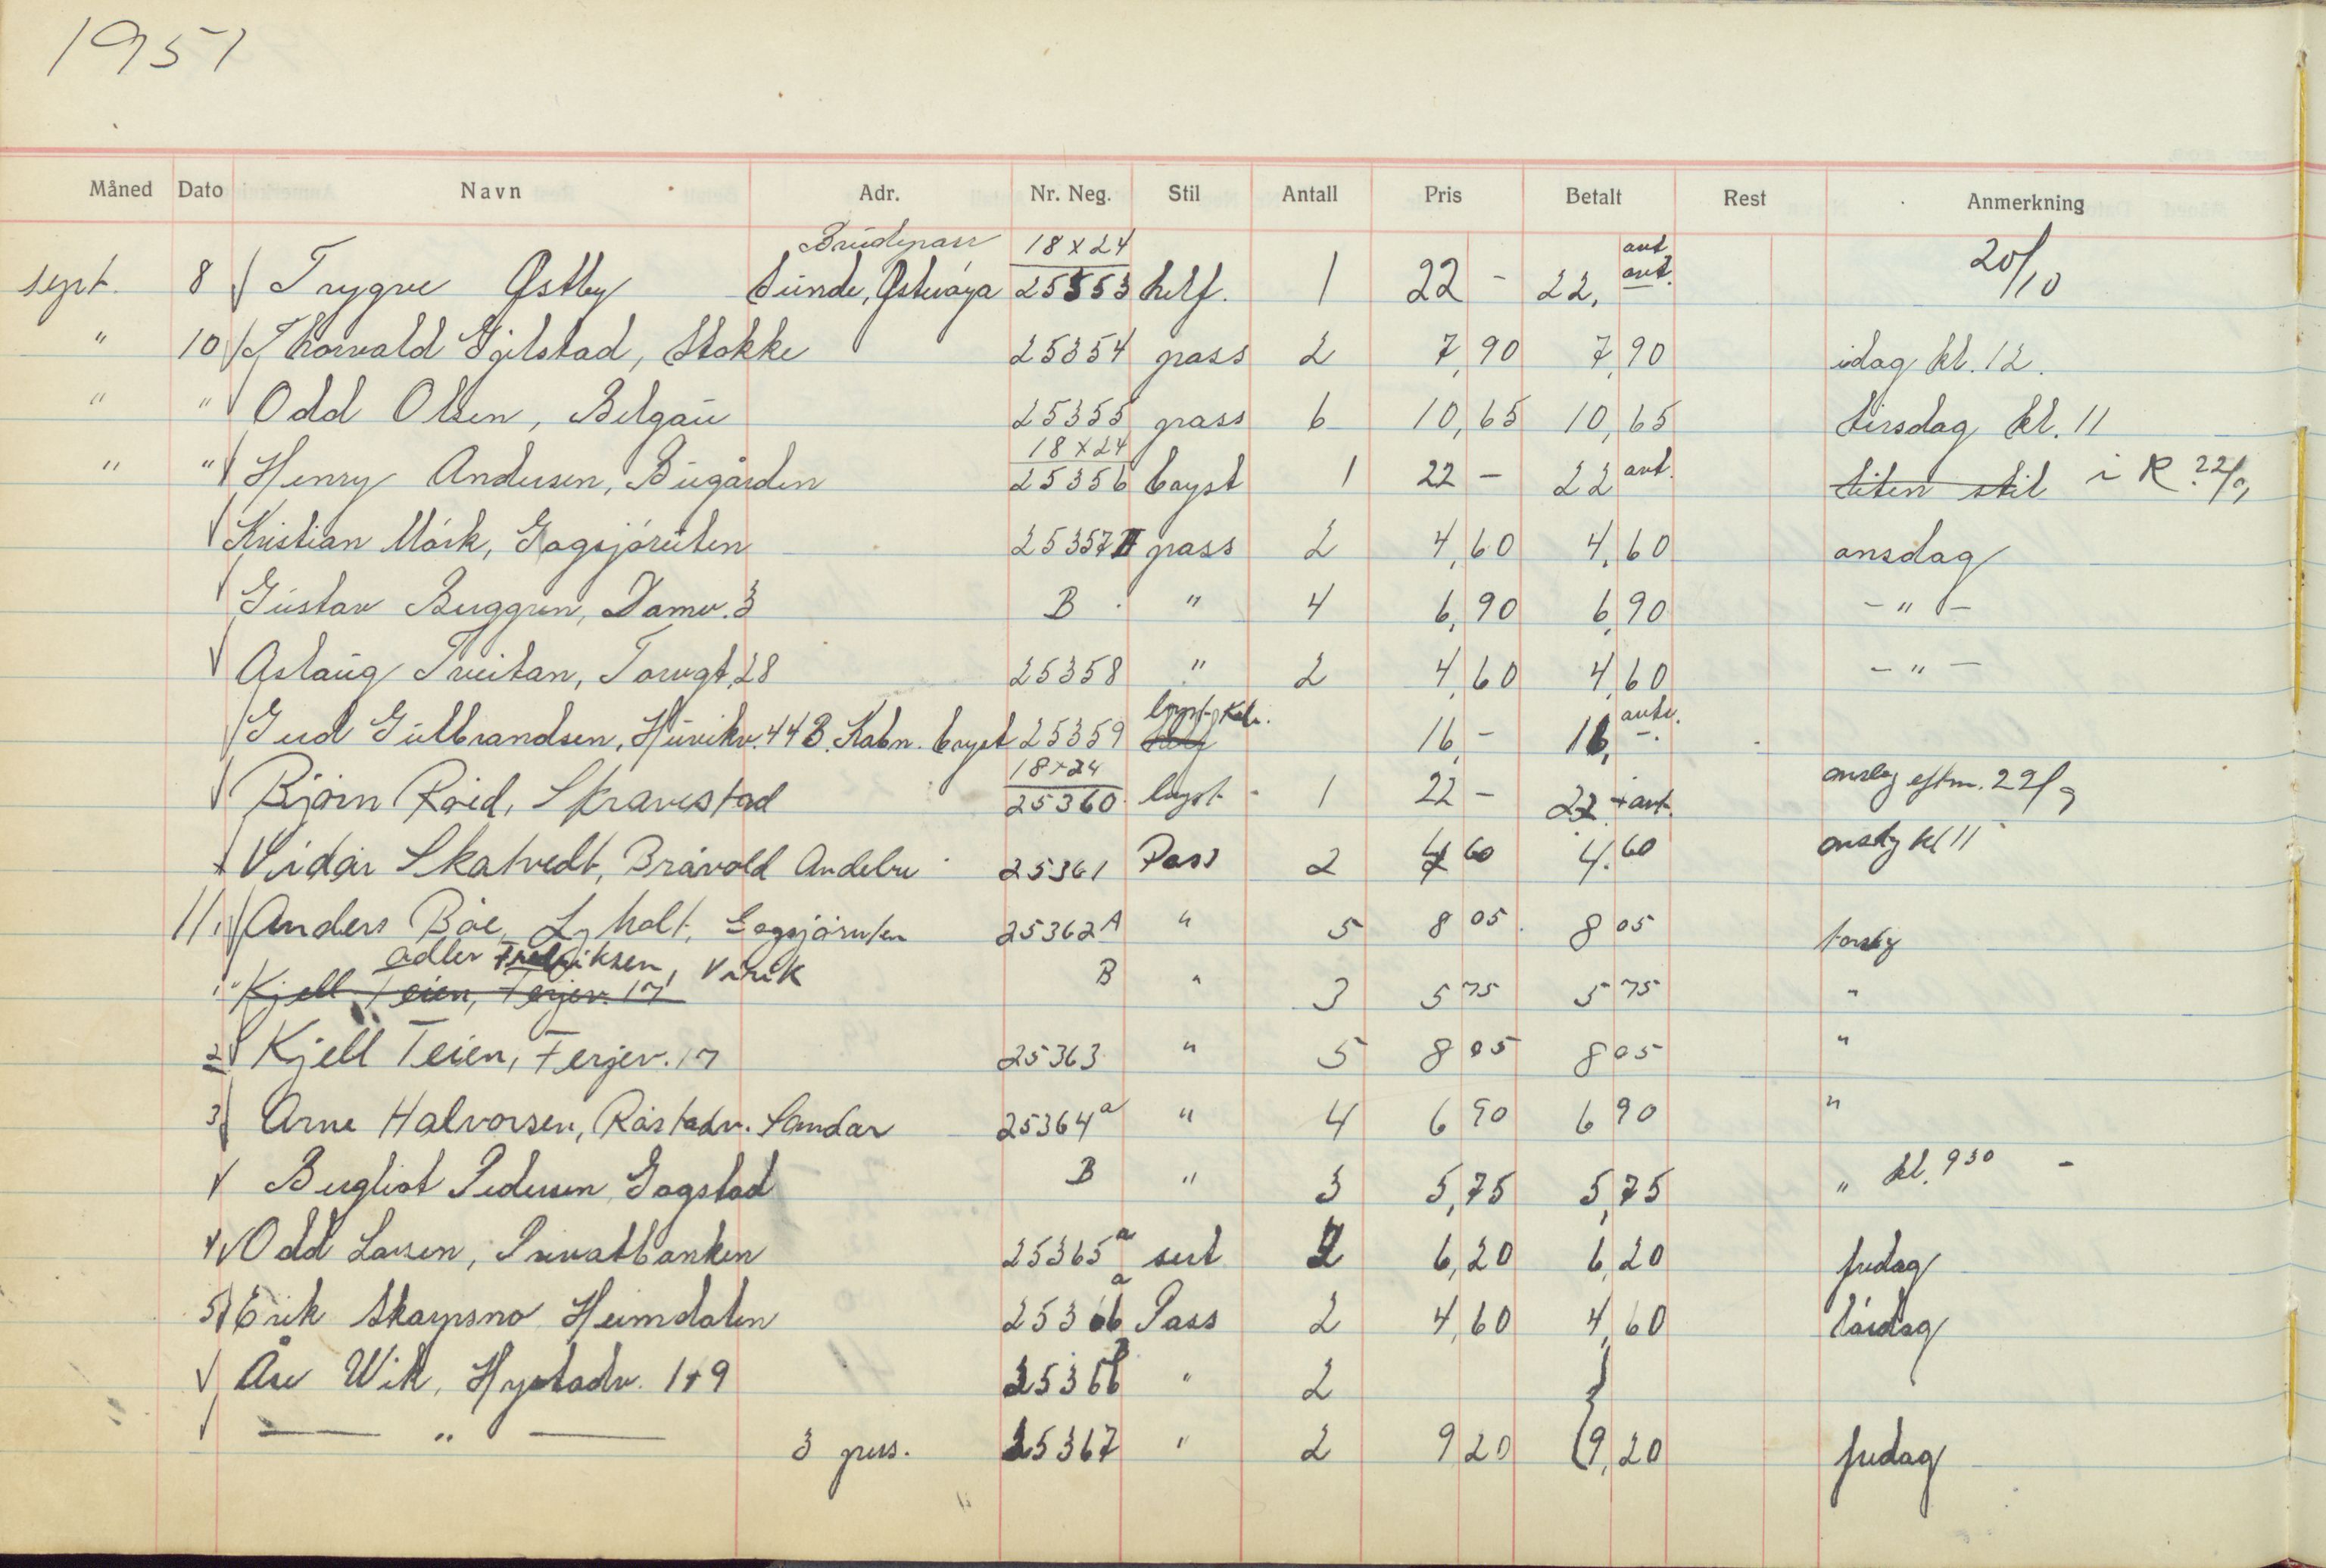 1951
Måned Dato Navn Adr. Nr. Neg. Stil Antall Pris Betalt Rest Anmerkning
Brudepar 18 x 24 ant
sept. 8 Trygve Østby Sunde, Østerøya 25353 helf. 1 22 - 22, ant. 20/10
" 10 Thorvald Gjelstad, Stokke 25354 pass 2 7,90 7,90 idag kl. 12.
" " Odd Olsen, Belgau 25355 pass 6 10,65 10,65 tirsdag kl. 11
18 x 24
" " Henry Andersen, Bugården 25356 bryst 1 22 - 22 ant. liten stil i R. 22/9
Kristian Mörk, Gogsjöruten 25357 pass 2 4,60 4,60 onsdag
Gustav Berggren, Damv. 3 B " 4 6,90 6,90 - " -
Aslaug Treitan, Torvgt. 28 25358 " 2 4,60 4,60 - " -
bryst Kab.
Gerd Gulbrandsen, Huvikv. 44 B. Kabn. bryst 25359 16 - 16, -.
18 x 24
Björn Röed, Skravestad 25360 bryst - 1 22 - 22 + ant. onsdag eftm. 22/9
Vidar Skatvedt, Bråvold Andebu 25361 Pass 2 4 60 4.60 onsdg kl 11
11. Anders Böe, Lyholt, Gogsjöruten 25362A " 5 8 05 8 05 torsdg
adler Fredriksen, Virik
" Kjell Teien, Ferjev. 17 B " 3 5 75 5 75 "
2 Kjell Teien, Ferjev. 17 25363 " 5 8 05 8 05 "
3 Arne Halvorsen, Råstadv. Sandar 25364 a " 4 6 90 6 90 "
Bergliot Pedersen Gogstad B " 3 5,75 5,75 " kl. 9 30 -
Odd Larsen, Privatbanken 25365 a sert 2 6,20 6,20 fredag
5 Erik Skarpsno Heimdalen 25366 a Pass 2 4,60 4,60 lördag
Åse Wik, Hystadv. 149 25366 B " 2
— " — 3 pers. 25367 " 2 9 20 9,20 fredag